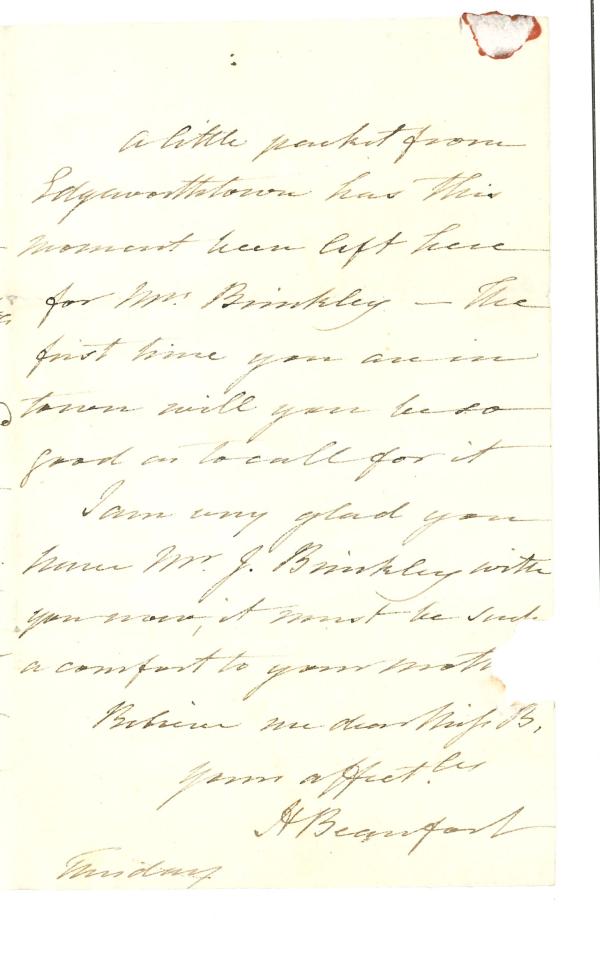 A little packet from
Edgeworthtown has this
moment been left here
for Mrs. Brinkley — The
first time you are in
town will you be so
good as to call for it
I am very glad you
have Mr. J. Brinkley with
you now, it must be such
a comfort to your moth
Believe me dear Miss B,
yours affect.ly
H Beaufort